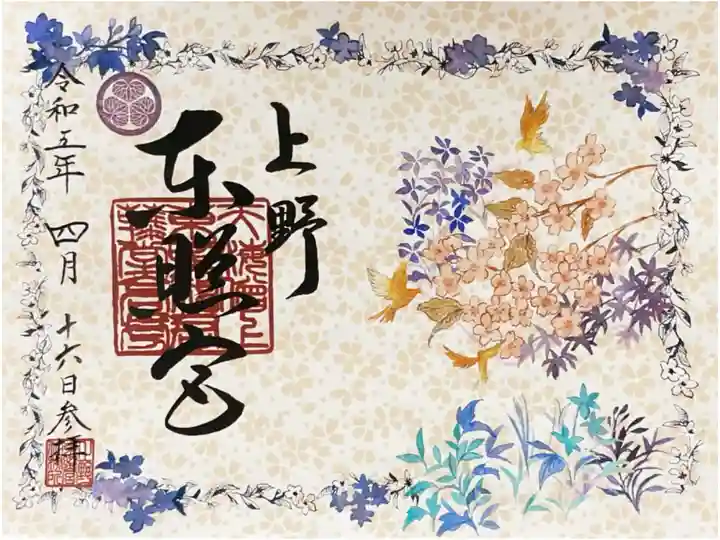 上野
東照宮
令和五年 四月 十六日参拝